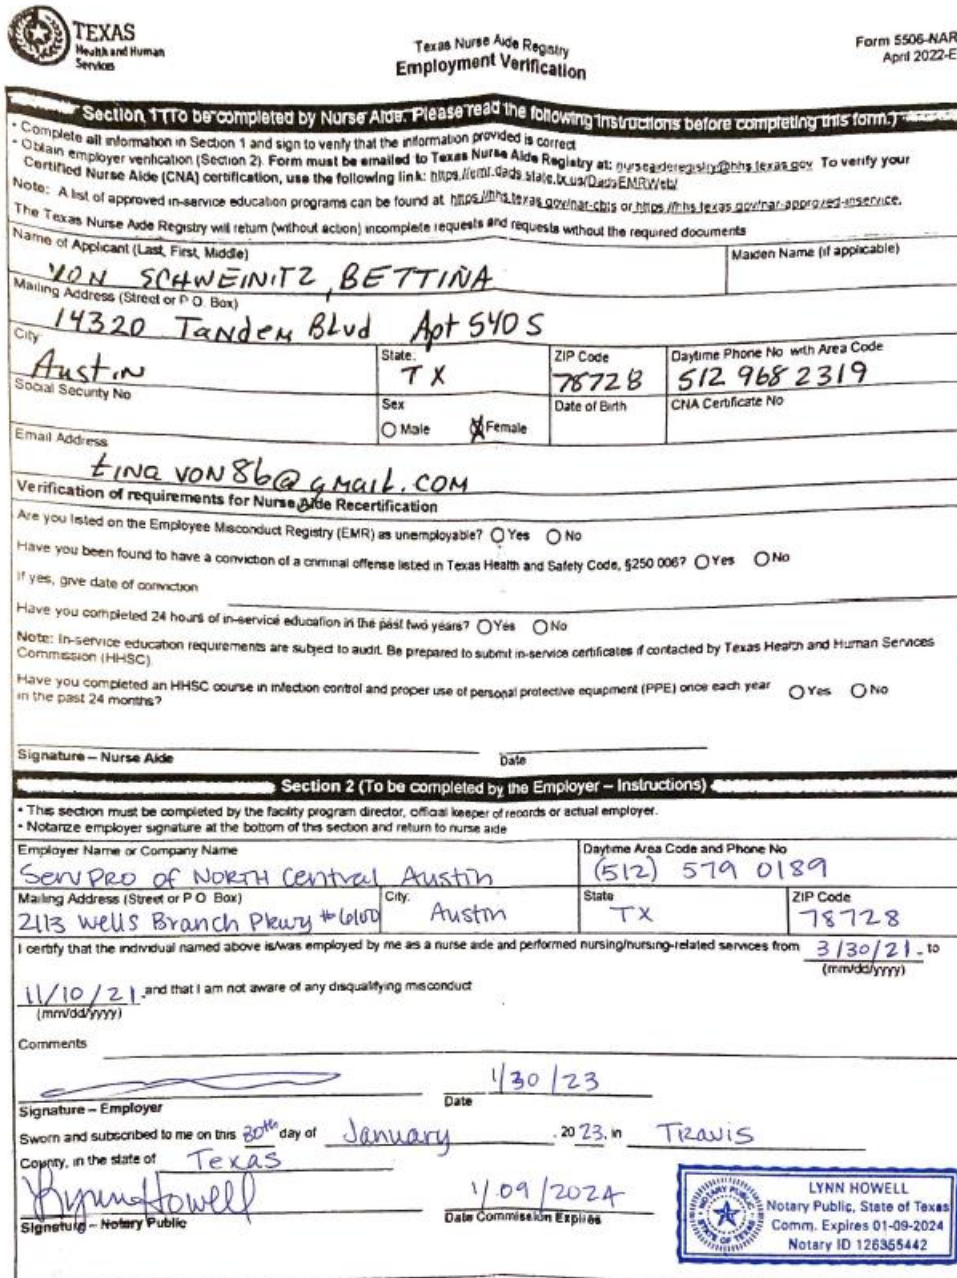 TEXAS
Health and Human
Services
Texas Nurse Aide Registry
Employment Verification
Form 5506-NAR
April 2022-E
Section 1 (To be completed by Nurse Aide. Please read the following instructions before completing this form.)
• Complete all information in Section 1 and sign to verify that the information provided is correct
• Obtain employer verification (Section 2). Form must be emailed to Texas Nurse Aide Registry at: nurseaideregistry@hhs.texas.gov To verify your
Certified Nurse Aide (CNA) certification, use the following link: https://emr.dads.state.tx.us/DadsEMRWeb/
Note: A list of approved in-service education programs can be found at https://hhs.texas.gov/nar-cbts or https://hhs.texas.gov/nar-approved-inservice.
The Texas Nurse Aide Registry will return (without action) incomplete requests and requests without the required documents
Name of Applicant (Last, First, Middle)
Maiden Name (if applicable)
VON SCHWEINITZ, BETTINA
Mailing Address (Street or P.O. Box)
14320 Tandem Blvd Apt 5405
City
State:
ZIP Code
Daytime Phone No with Area Code
Austin
TX
78728
512 968 2319
Social Security No
Sex
Date of Birth
CNA Certificate No
Male
Female
Email Address
tina von86@gmail.com
Verification of requirements for Nurse Aide Recertification
Are you listed on the Employee Misconduct Registry (EMR) as unemployable? Yes No
Have you been found to have a conviction of a criminal offense listed in Texas Health and Safety Code, §250 006? Yes No
If yes, give date of conviction
Have you completed 24 hours of in-service education in the past two years? Yes No
Note: In-service education requirements are subject to audit. Be prepared to submit in-service certificates if contacted by Texas Health and Human Services
Commission (HHSC)
Have you completed an HHSC course in infection control and proper use of personal protective equipment (PPE) once each year
in the past 24 months?
Yes No
Signature – Nurse Aide
Date
Section 2 (To be completed by the Employer – Instructions)
• This section must be completed by the facility program director, official keeper of records or actual employer.
• Notarize employer signature at the bottom of this section and return to nurse aide
Employer Name or Company Name
Daytime Area Code and Phone No
ServPRO of NORTH Central Austin
(512) 579 0189
Mailing Address (Street or P O Box)
City:
State
ZIP Code
2113 Wells Branch Pkwy #6100
Austin
TX
78728
I certify that the individual named above is/was employed by me as a nurse aide and performed nursing/nursing-related services from 3/30/21 - to
(mm/dd/yyyy)
11/10/21 - and that I am not aware of any disqualifying misconduct
(mm/dd/yyyy)
Comments
1/30/23
Signature – Employer
Date
Sworn and subscribed to me on this 30th day of January, 2023, in Travis
County, in the state of Texas
Lynn Howell
1/09/2024
Signature – Notary Public
Date Commission Expires
NOTARY PUBLIC
STATE OF TEXAS
LYNN HOWELL
Notary Public, State of Texas
Comm. Expires 01-09-2024
Notary ID 126355442